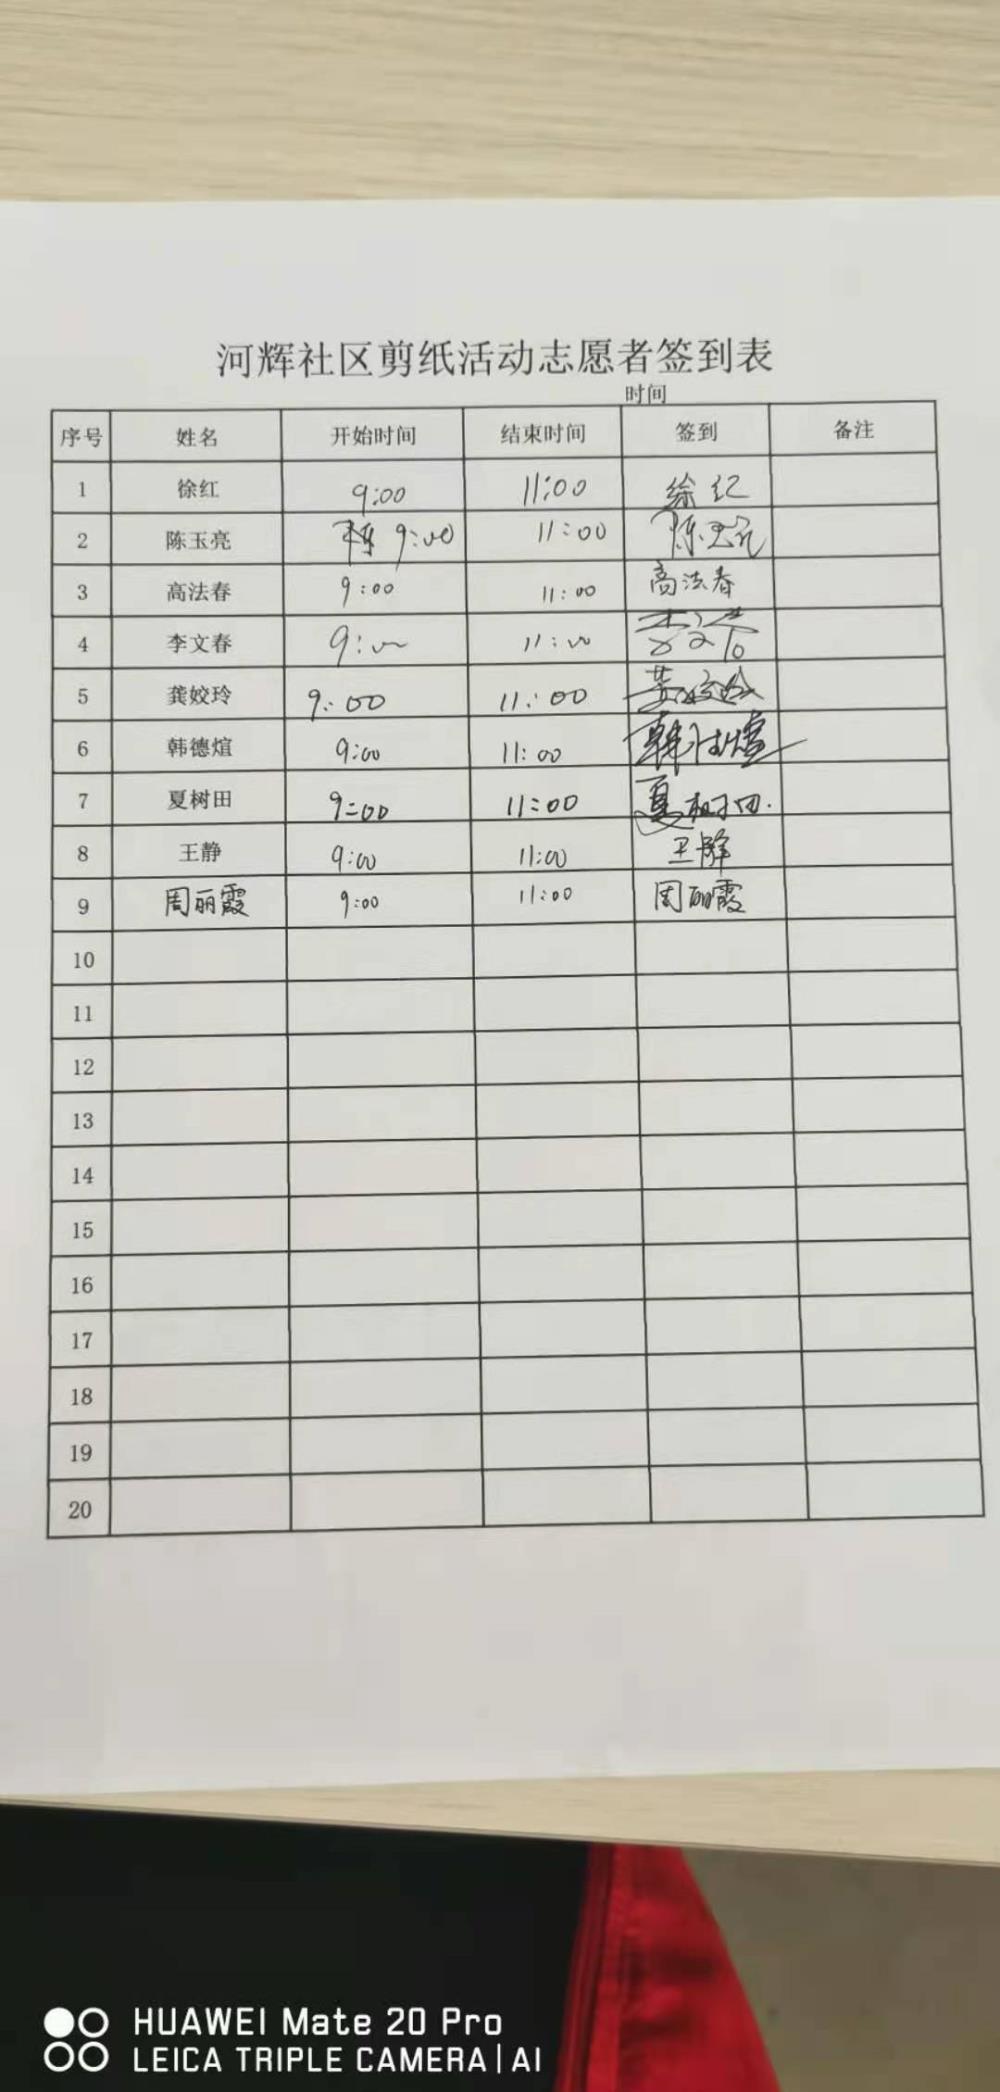 河辉社区剪纸活动志愿者签到表
时间
序号 姓名 开始时间 结束时间 签到 备注
1 徐红 9:00 11:00 徐红
2 陈玉亮 9:00 11:00 陈玉亮
3 高法春 9:00 11:00 高法春
4 李文春 9:00 11:00 李文春
5 龚姣玲 9:00 11:00 龚姣玲
6 韩德煊 9:00 11:00 韩德煊
7 夏树田 9:00 11:00 夏树田.
8 王静 9:00 11:00 王静
9 周丽霞 9:00 11:00 周丽霞
10
11
12
13
14
15
16
17
18
19
20
HUAWEI Mate 20 Pro
LEICA TRIPLE CAMERA | AI